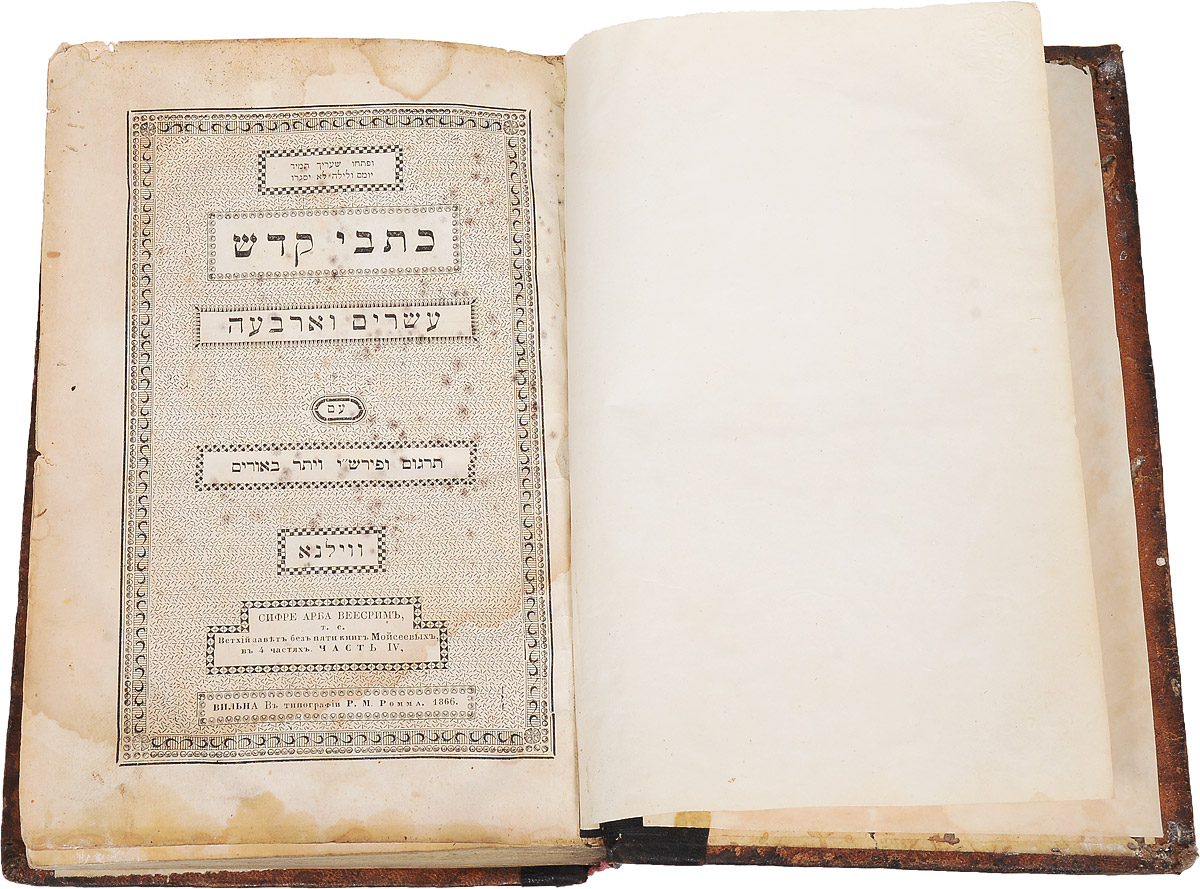 ופתחו שעריך תמיד
יומם ולילה לא יסגרו
כתבי קדש
עשרים וארבעה
עם
תרגום ופירש״י ויתר באורים
ווילנא
СИФРЕ АРБА ВЕЕСРИМЪ,
т. е.
Ветхій завѣтъ безъ пяти книгъ Мойсеевыхъ,
въ 4 частяхъ. ЧАСТЬ IV.
ВИЛЬНА Въ типографіи Р. М. Ромма. 1866.